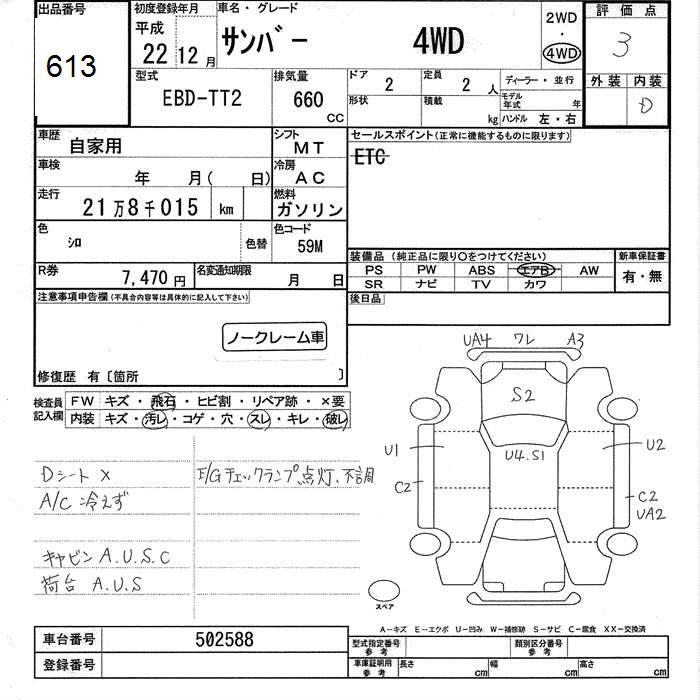 出品番号
613
初度登録年月
平成
22 12 月
車名・グレード
サンバー 4WD
2WD
・
4WD
評価点
3
外装 内装
D
型式
EBD-TT2
排気量
660
CC
ドア
2
定員
2 人
ディーラー・並行
形状
積載
kg
モデル年式 年
ハンドル 左・右
車歴
自家用
シフト
MT
セールスポイント(正常に機能するものに限ります)
ETC
車検
年 月( 日)
冷房
AC
走行
21万8千015 km
燃料
ガソリン
色
シロ
色替
色コード
59M
装備品(純正品に限り○をつけてください)
PS PW ABS エアB AW
SR ナビ TV カワ
新車保証書
有・無
R券
7,470 円
名変通知期限
月 日
後日品
注意事項申告欄(不具合内容等は具体的に記入して下さい)
ノークレーム車
修復歴 有〔箇所 〕
検査員記入欄
FW キズ・飛石・ヒビ割・リペア跡・×要
内装 キズ・汚レ・コゲ・穴・スレ・キレ・破レ
Dシート ×
E/Gチェックランプ点灯、不調
A/C 冷えず
キャビン A.U.S.C
荷台 A.U.S
UA4 ワレ A3
S2
U4.S1
U1
U2
C2
C2
UA2
スペア
A-キズ E-エクボ U-凹み W-補修跡 S-サビ C-腐食 XX-交換済
車台番号
502588
登録番号
型式指定番号
参考
類別区分番号
参考
車庫証明用
参考
長さ cm
幅 cm
高さ cm